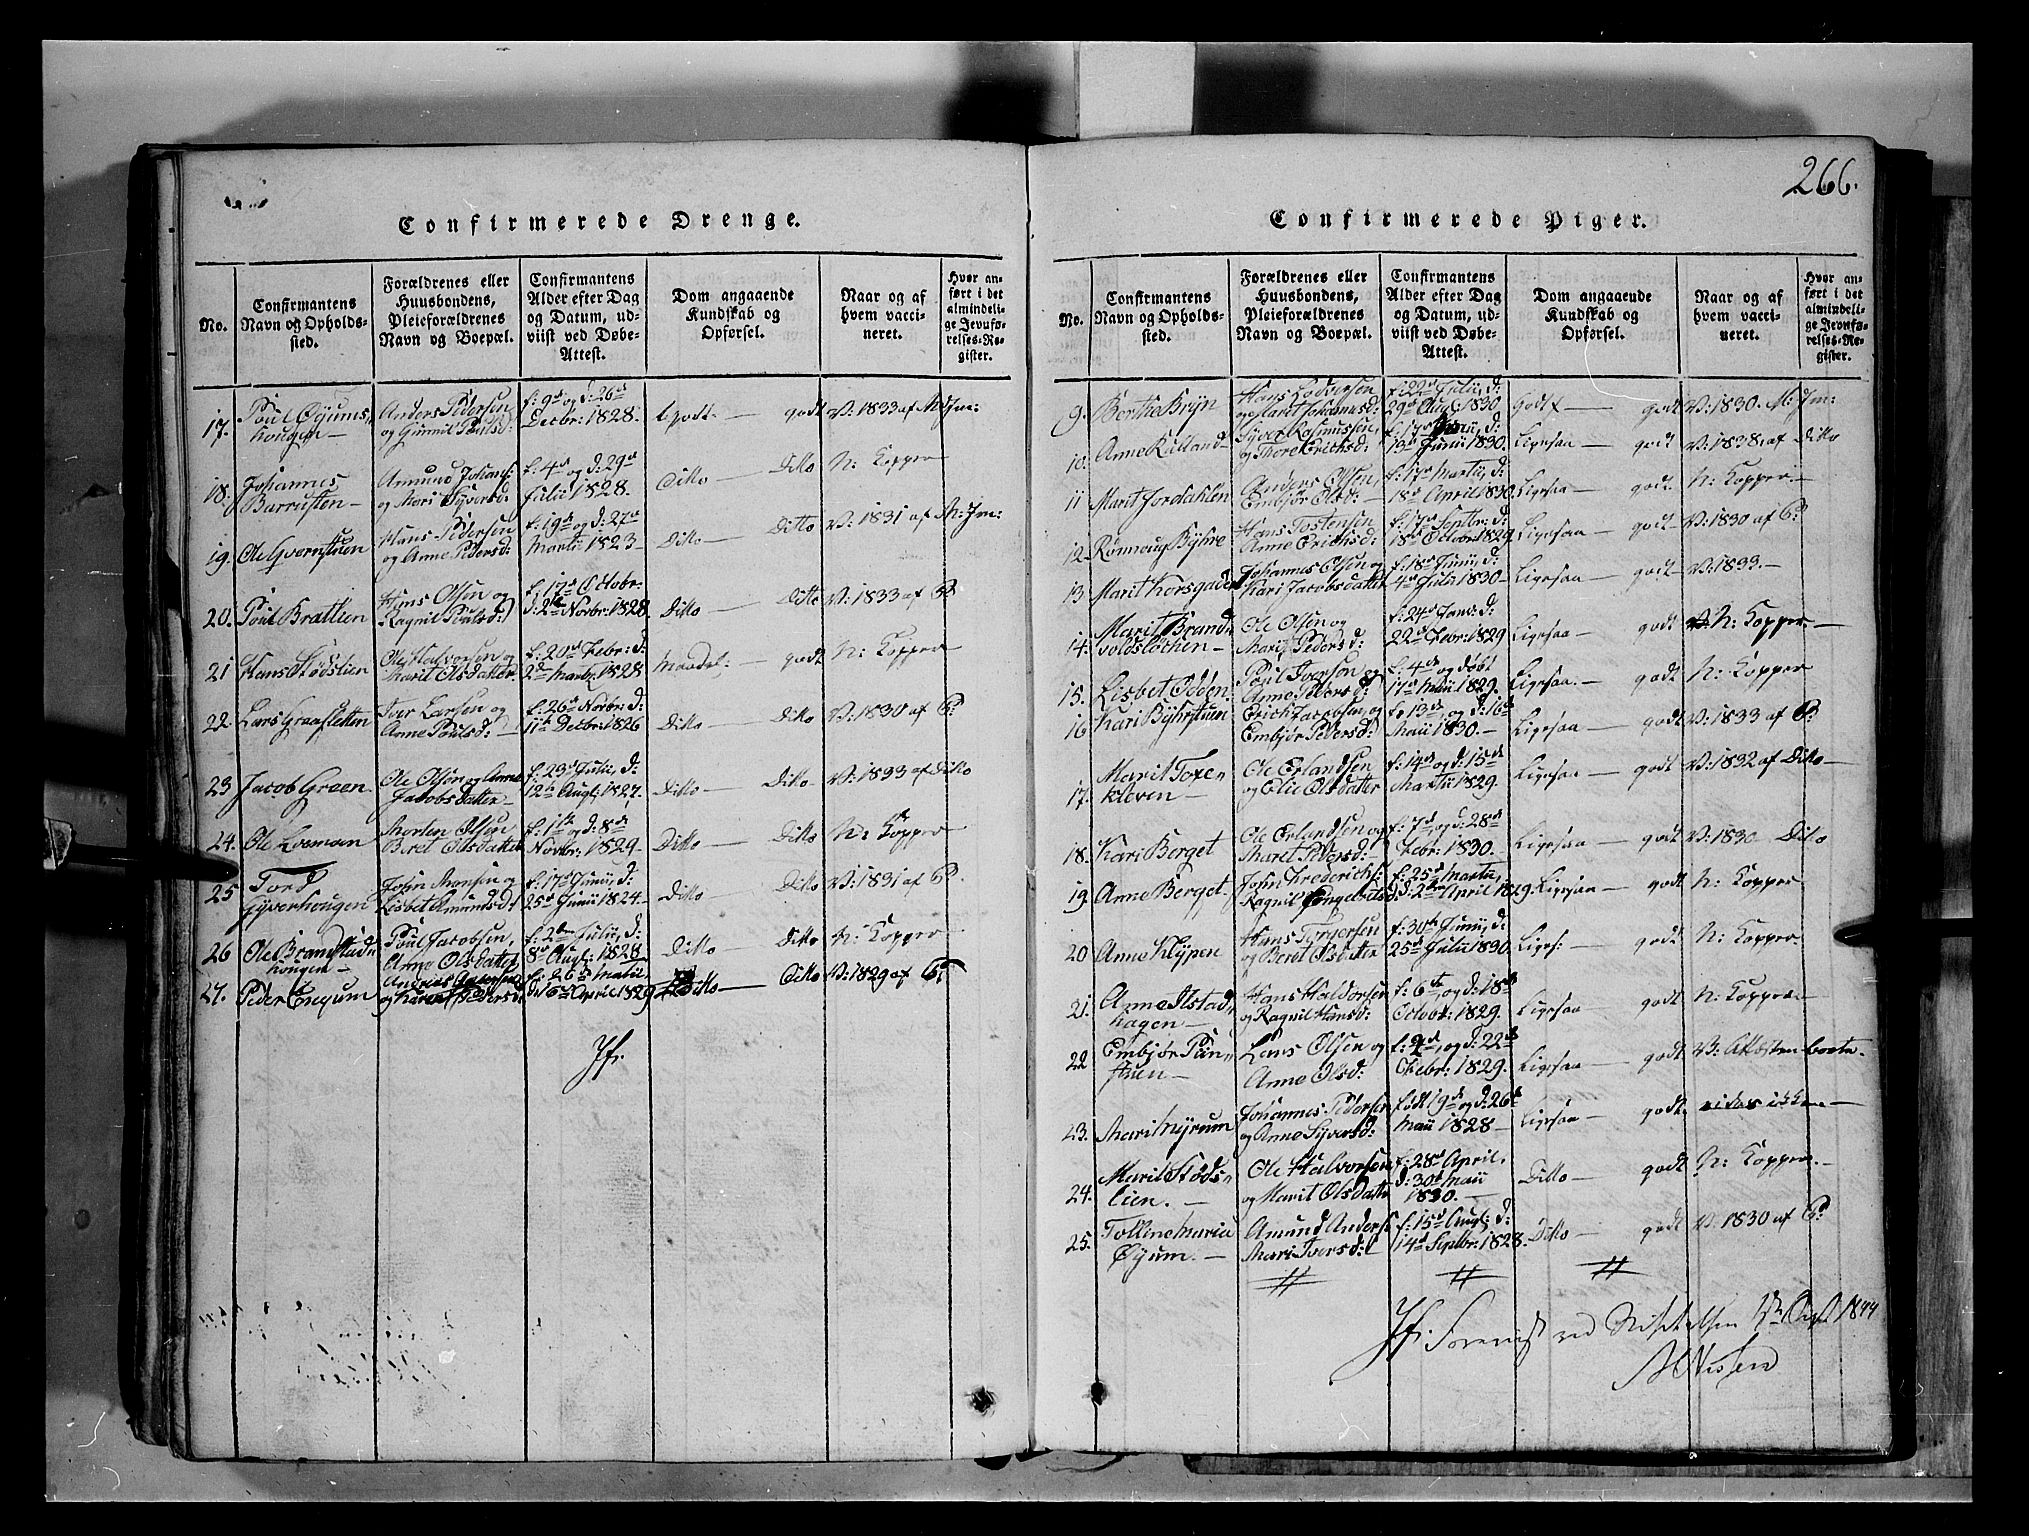 Confirmerede Drenge.
No.
Confirmantens
Navn og Opholds-
sted.
Forældrenes eller
Huusbondens,
Pleieforældrenes
Navn og Boepæl.
Confirmantens
Alder efter Dag
og Datum, ud-
viist ved Døbe-
Attest.
Dom angaaende
Kundskab og
Opførsel.
Naar og af
hvem vacci-
neret.
Hvor an-
ført i det
almindeli-
ge Jevnfø-
relses-Re-
gister.
17. Poul Øyums-
hougen
Anders Pedersen
og Gunnil Poulsd:
f: 9de og d: 26de
Decbr: 1828.
Godt. godt V: 1833 af M: Jm:
18. Johannes
Barrusten
Amund Johans:
og Mari Syversd:
f: 4de og d: 29de
Julii 1828.
Ditto Ditto N: Kopper
19. Ole Qvernstuen
Hans Pedersen
og Anne Pedersd:
f: 19de og d: 27de
Martii 1823
Ditto Ditto V: 1831 af M: Jm:
20. Poul Brattlien
Hans Olsen og
Ragnil Poulsd:
f: 17de Octobr:
d: 2den Novbr: 1828.
Ditto Ditto V: 1833 af Do
21 Hans Stødslien
Ole Halvorsen og
Marit Olsdatter
f: 20de Febr: d:
2de Martz 1828
Maadel: godt N: Kopper
22. Lars Graasletten
Iver Larsen og
Anne Poulsd:
f: 26de Novbr: d:
11te Decbr: 1826
Ditto Ditto V: 1830 af Do
23 Jacob Green
Ole Olsen og Anne
Jacobsdatter
f: 23de Julii, d:
12te Augt: 1827,
Ditto Ditto V: 1833 af Ditto
24. Ole Loemoen
Morten Olsen
Beret Olsdatter
f: 1ste og d: 8de
Novbr: 1829.
Ditto Ditto N: Kopper
25 Tord
Gyverhougen
John Monsen og
Lisbet Amundsd:
f: 17de Junii, d:
25de Junii 1824.
Ditto Ditto V: 1831 af Do.
26 Ole Brandstad-
hougen
Poul Jacobsen,
Anne Olsdatter
f: 2den Julii, d:
8de Augt: 1828
Ditto Ditto N: Kopper
27. Peder Engum
og Karen Pedersd:
f: 26de Martii,
d: 16de April 1829
Ditto Ditto V: 1829 af Do
Jfr.
266.
Confirmerede Piger.
No.
Confirmantens
Navn og Opholds-
sted.
Forældrenes eller
Huusbondens,
Pleieforældrenes
Navn og Boepæl.
Confirmantens
Alder efter Dag
og Datum, ud-
viist ved Døbe-
Attest.
Dom angaaende
Kundskab og
Opførsel.
Naar og af
hvem vacci-
neret.
Hvor an-
ført i det
almindeli-
ge Jevnfø-
relses-Re-
gister.
9. Berthe Bryn
Hans Lodversen
og Marit Johannesd:
f: 22de Julii, d:
29de Aug: 1830
Godt godt V: 1830. M: Jm:
10. Anne Kalland
Syver Rasmussen,
og Thore Erichsd:
f: 17de Junii, d:
13de Junii 1830.
Ligesaa godt V: 1838, af Ditto
11 Marit Jordahlen
Anders Olsen,
Embjør Olsd:
f: 17de Martii, d:
18de April 1830.
Ligesaa godt N: Kopper
12. Rønnoug Byhre
Hans Tostensen
Anne Erichsd:
f: 17de Septbr: d:
18de Octobr: 1829.
Ligesaa godt V: 1830 af Do
13 Marit Korsgaden
Johannes Olsen og
Kari Jacobsdatter
f: 18de Junii, d:
4de Julii 1830
Ligesaa godt V: 1833.
14. Marit Brand-
voldsløkken
Ole Olsen og
Marit Pedersd:
f: 24de Jan: d:
22de Febr: 1829
Ligesaa godt N: Kopper.
15. Lisbet Odden
Poul Iversen og
Anne Pedersd:
f: 4de og døbt
17de Maii 1829.
Ligesaa. godt N: Kopper
16 Kari Byhrstuen
Erich Jacobsen og
Embjør Pedersd:
f: 13de, og d: 16de
Maii 1830.
Ligesaa godt V: 1833 af Do.
17. Marit Toxe-
kleven
Ole Erlandsen
og Eline Olsdatter
f: 14de og d: 15de
Martii 1829.
Ligesaa godt V: 1832 af Ditto
18. Kari Berget
Ole Erlandsen og
Maret Pedersd:
f: 7de, og d: 28de
Febr: 1830.
Ligesaa godt V: 1830 Ditto
19 Anne Berget.
John Frederichs:
Ragnil Engebretsd:
f: 25de Martii,
d: 2den April 1829
Ligesaa godt N: Kopper
20 Anne Klypen
Hans Torgersen
og Beret Olsdatter
f: 30te Junii, d:
25de Julii 1830.
Liges: godt N: Kopper
21. Anne Ilstad-
hagen
Hans Haldorsen
og Ragnil Hansd:
f: 6te, og d: 18de
Octobr: 1829.
Ligesaa godt N: Kopper
22 Embjør Puu-
stuen
Lars Olsen og
Anne Olsd:
f: 2de, og d: 22de
Febr: 1829.
Ligesaa godt V: Attesten borte.
23. Mari Myrum
Johannes Pedersen
og Anne Syversd:
født 19de og d: 26de
Maii 1828
Ligesaa godt. vides ikke
24. Marit Støds-
lien.
Ole Halvorsen
og Marit Olsdatter
f: 28de April,
d: 30te Maii
1830.
Ditto godt N: Kopper.
25. Tolline Maria
Øyum.
Amund Anders:
Mari Iversd:
f: 15de Augt: d:
14de Septbr: 1828.
Ditto godt V: 1830 af Do
Jfr. Foreviist ved Visitatsen 1844